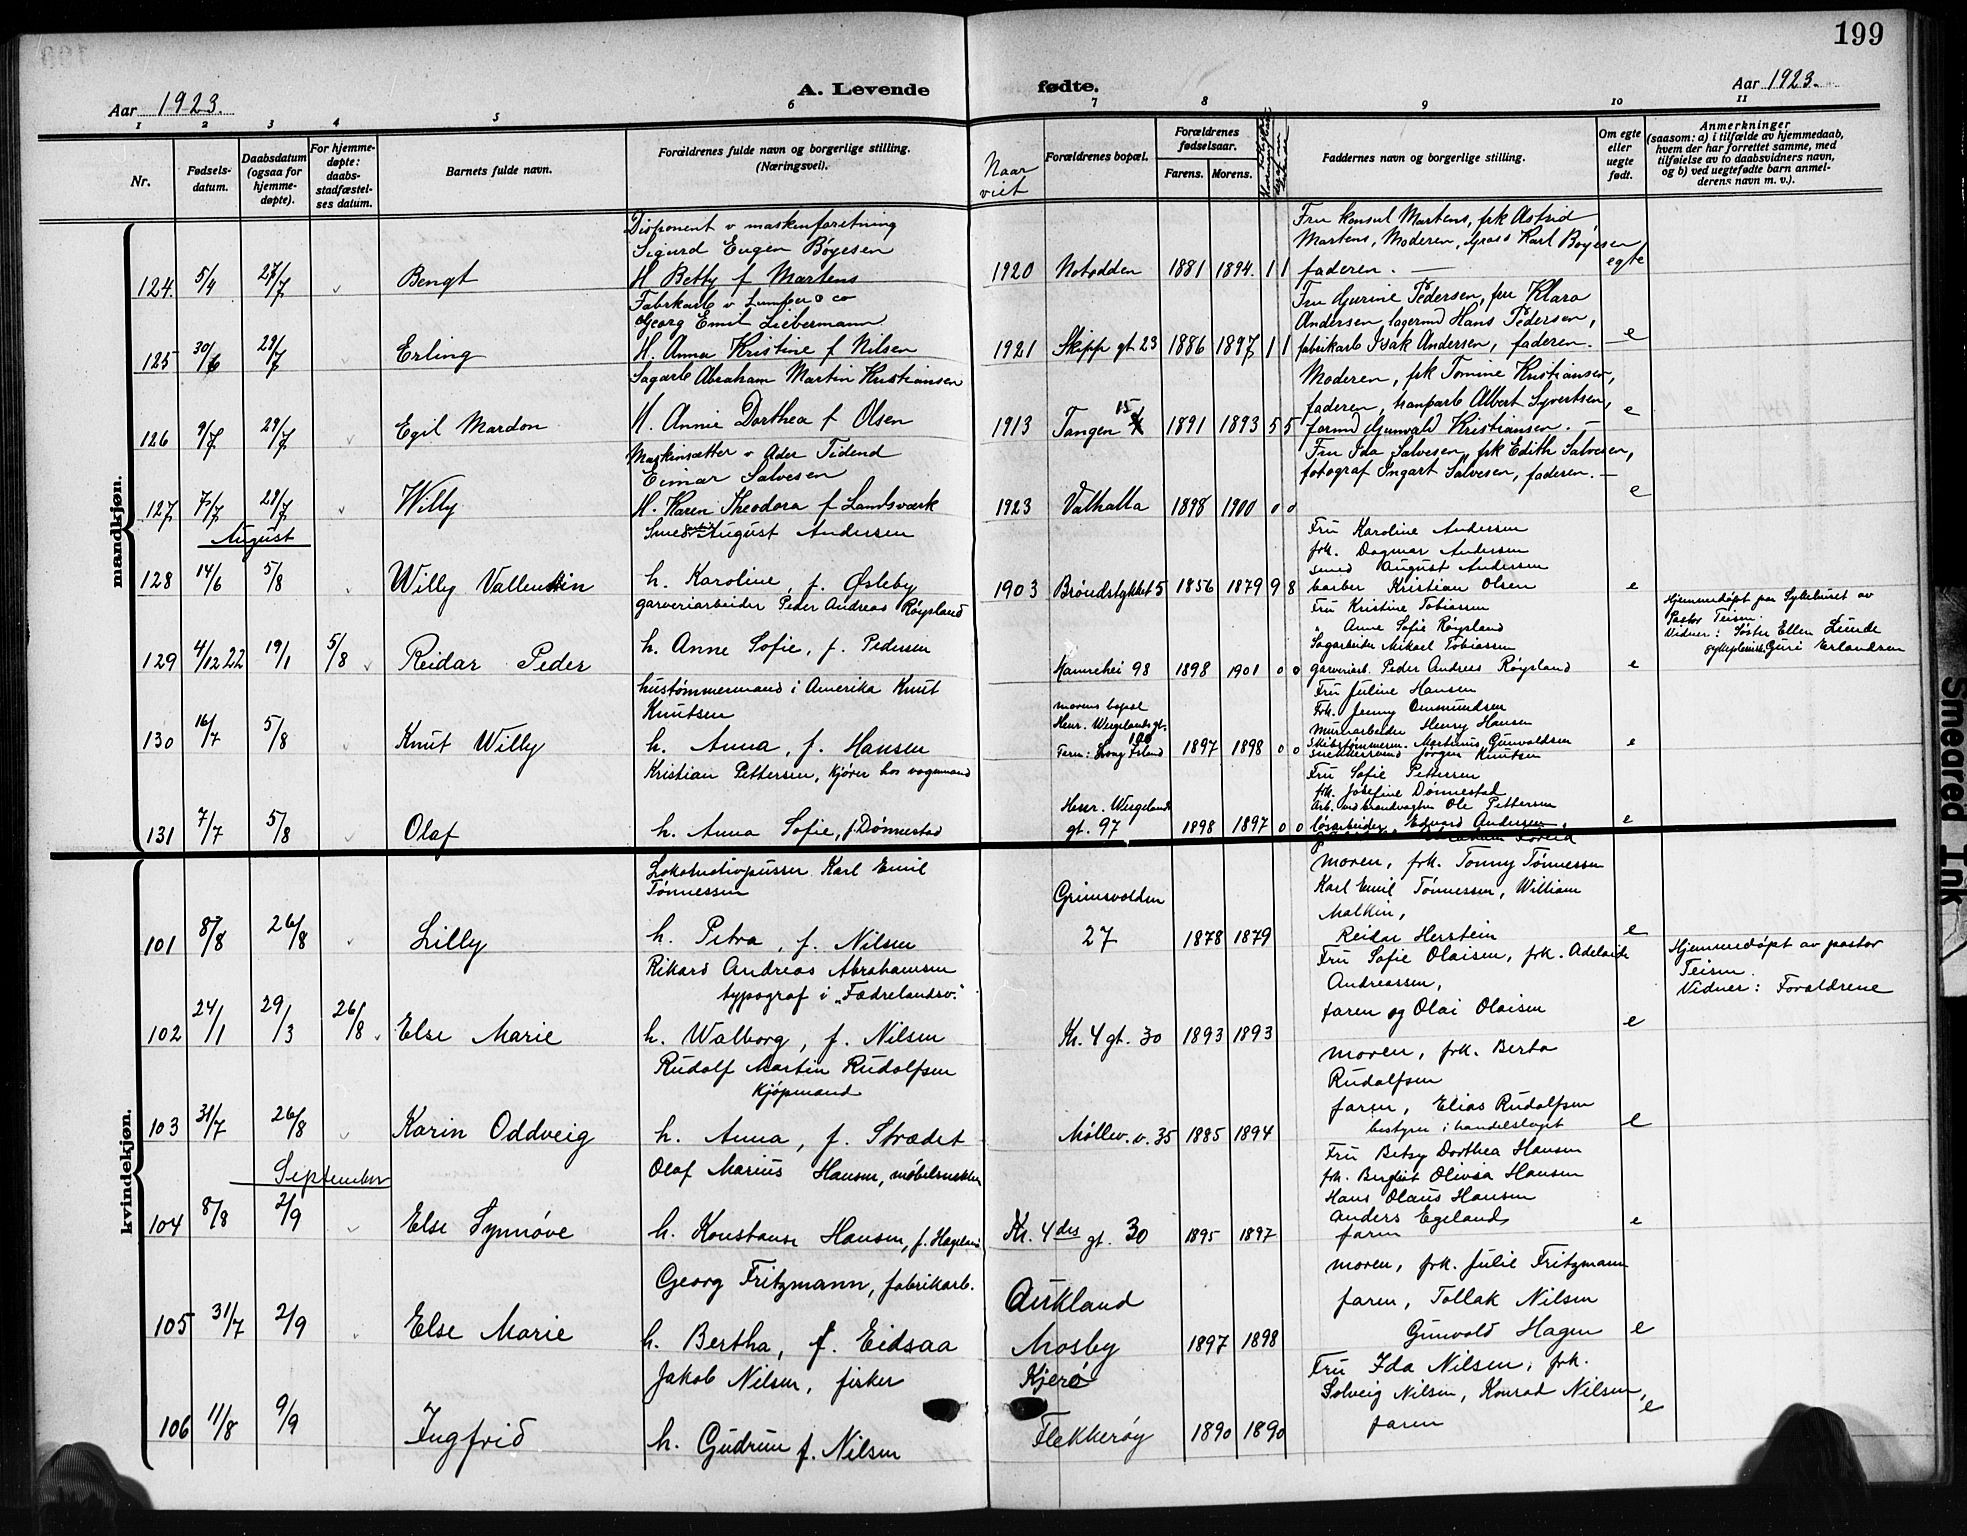 199
Aar 1923.
A. Levende fødte.
Aar 1923.
1 2 3 4 5 6 7 8 9 10 11
Nr.
Fødsels-
datum.
Daabsdatum
(ogsaa for
hjemme-
døpte).
For hjemme-
døpte:
daabs-
stadfæstel-
ses datum.
Barnets fulde navn.
Forældrenes fulde navn og borgerlige stilling.
(Næringsvei).
Naar
viet
Forældrenes bopæl.
Forældrenes
fødselsaar.
Farens. Morens.
Faddernes navn og borgerlige stilling.
Om egte
eller
uegte
født.
Anmerkninger
(saasom: a) i tilfælde av hjemmedaab,
hvem der har forrettet samme, med
tilføielse av to daabsvidners navn,
og b) ved uegtefødte barn anmel-
derens navn m. v.).
mandkjøn.
124. 5/4 27/7 Bengt
Disponent v maskinforetning
Sigurd Eugen Bøyesen
H. Betty f Martens
1920 Notodden 1881 1894. 1 1
Fru konsul Martens, frk Astrid
Martens, Moderen, Gross Karl Boyesen
faderen. —
egte
125 30/6 29/7 Erling
Fabrikarb v Lumper & co
Georg Emil Liebermann.
H. Anna Kristine f Nilsen
1921 Skipp gt 23 1886 1897 1 1
Fru Gurine Pedersen, fru Klara
Andersen, lagermd Hans Pedersen,
fabrikarb Isak Andersen, faderen. —
e
126 9/7 29/7 Egil Mardon
Sagarb Abraham Martin Kristiansen
H. Annie Dorthea f Olsen
1913 Tangen 15 1891 1893 5 5
Moderen, frk Tomine Kristiansen,
faderen, tranparb Albert Syvertsen,
formd Gunvald Kristiansen. —
e
127 7/7 29/7 Willy
Maskinsætter v Ader Tidend
Eimar Salvesen
H. Karen Theodora f Landsværk
1923 Valhalla 1898 1900 0 0
Fru Ida Salvesen, frk Edith Salvesen,
fotograf Ingart Salvesen, faderen. —
e
August
128 14/6 5/8 Willy Vallentin
Smed August Andersen
h. Karoline, f. Østeby
1903 Brøndstykket 5 1856 1879 9 8
Fru Karoline Andersen
frk. Dagmar Andersen
smed August Andersen
barber Kristian Olsen
e
129 4/12 22 19/1 5/8 Reidar Peder
garveriarbeider Peder Andreas Røysland
h. Anne Sofie, f. Pedersen
Hannehei 98 1898 1901 0 0
Fru Kristine Tobiassen
" Anne Sofie Røysland
Sagarbeider Mikael Tobiassen
garveriarb. Peder Andreas Røysland
e
Hjemmedøpt paa Sykehuset av
Pastor Teisen.
Vidner: Søster Ellen Lunde
sykepleiersk. Guri Erlandsen
130 16/7 5/8 Knut Willy
hustømmermand i Amerika Knut
Knutsen
h. Anna, f. Hansen
morens bopæl
Henr. Wergelands gt.
106
Farn: Long Island 1897 1898 0 0
Fru Juline Hansen
Frk. Jenny Ommundsen
Murarbeider Henry Hansen
Skibstømmerm. Martinius Gunvaldsen
snekkersvend Jørgen Knutsen
e
131 7/7 5/8 Olaf
Kristian Pettersen, kjører hos vognmand
h. Anna Sofie, f. Dønnestad
Henr. Wergelands
gt. 97 1898 1897 0 0
Fru Sofie Pettersen
frk. Josefine Dønnestad
arb. ved brandvagten Ole Pettersen
løsarbeider Edvard Andersen
e
kvindekjøn.
101 8/8 26/8 Lilly
Lokomotivpusser Karl Emil
Tønnessen
h. Petra, f. Nilsen
Grimsvolden
27 1878 1879
moren, frk. Tonny Tønnessen
Karl Emil Tønnessen, William
Malkin,
Reidar Herstein
e
102 24/1 29/3 26/8 Else Marie
Rikard Andreas Abrahamsen
typograf i "Fædrelandsv."
h. Walborg, f. Nilsen
Kr. 4 gt. 30 1893 1893
Fru Sofie Olaisen, frk. Adelaide
Andreassen,
faren og Olai Olaisen
e
Hjemmedøpt av pastor
Teisen.
Vidner: Forældrene
103 31/7 26/8 Karin Oddveig
Rudolf Martin Rudolfsen
kjøpmand
h. Anna, f. Strædet
Møllev. v. 35 1885 1894
moren, frk. Berta
Rudolfsen
faren, Elias Rudolfsen
bestyrer i handelslaget
e
September
104 8/8 2/9 Else Synnøve
Olaf Marius Hansen, møbelsnekker
h. Konstanse Hansen, f. Hageland
Kr. 4des gt. 30 1895 1897
Fru Betsy Dorthea Hansen
frk. Bergliot Olivia Hansen
Hans Olaus Hansen
Anders Egeland
faren
e
105 31/7 2/9 Else Marie
Georg Fritzmann, fabrikarb.
h. Bertha, f. Eidsaa
Aukland
Mosby 1897 1898
moren, frk. Julie Fritzmann
faren, Tollak Nilsen
Gunvold Hagen
e
106 11/8 9/9 Ingfrid
Jakob Nilsen, fisker
h. Gudrun f. Nilsen
Kjerø
Flekkerøy 1890 1890
Fru Ida Nilsen, frk.
Solveig Nilsen, Konrad Nilsen,
faren
e
Smeared Ink